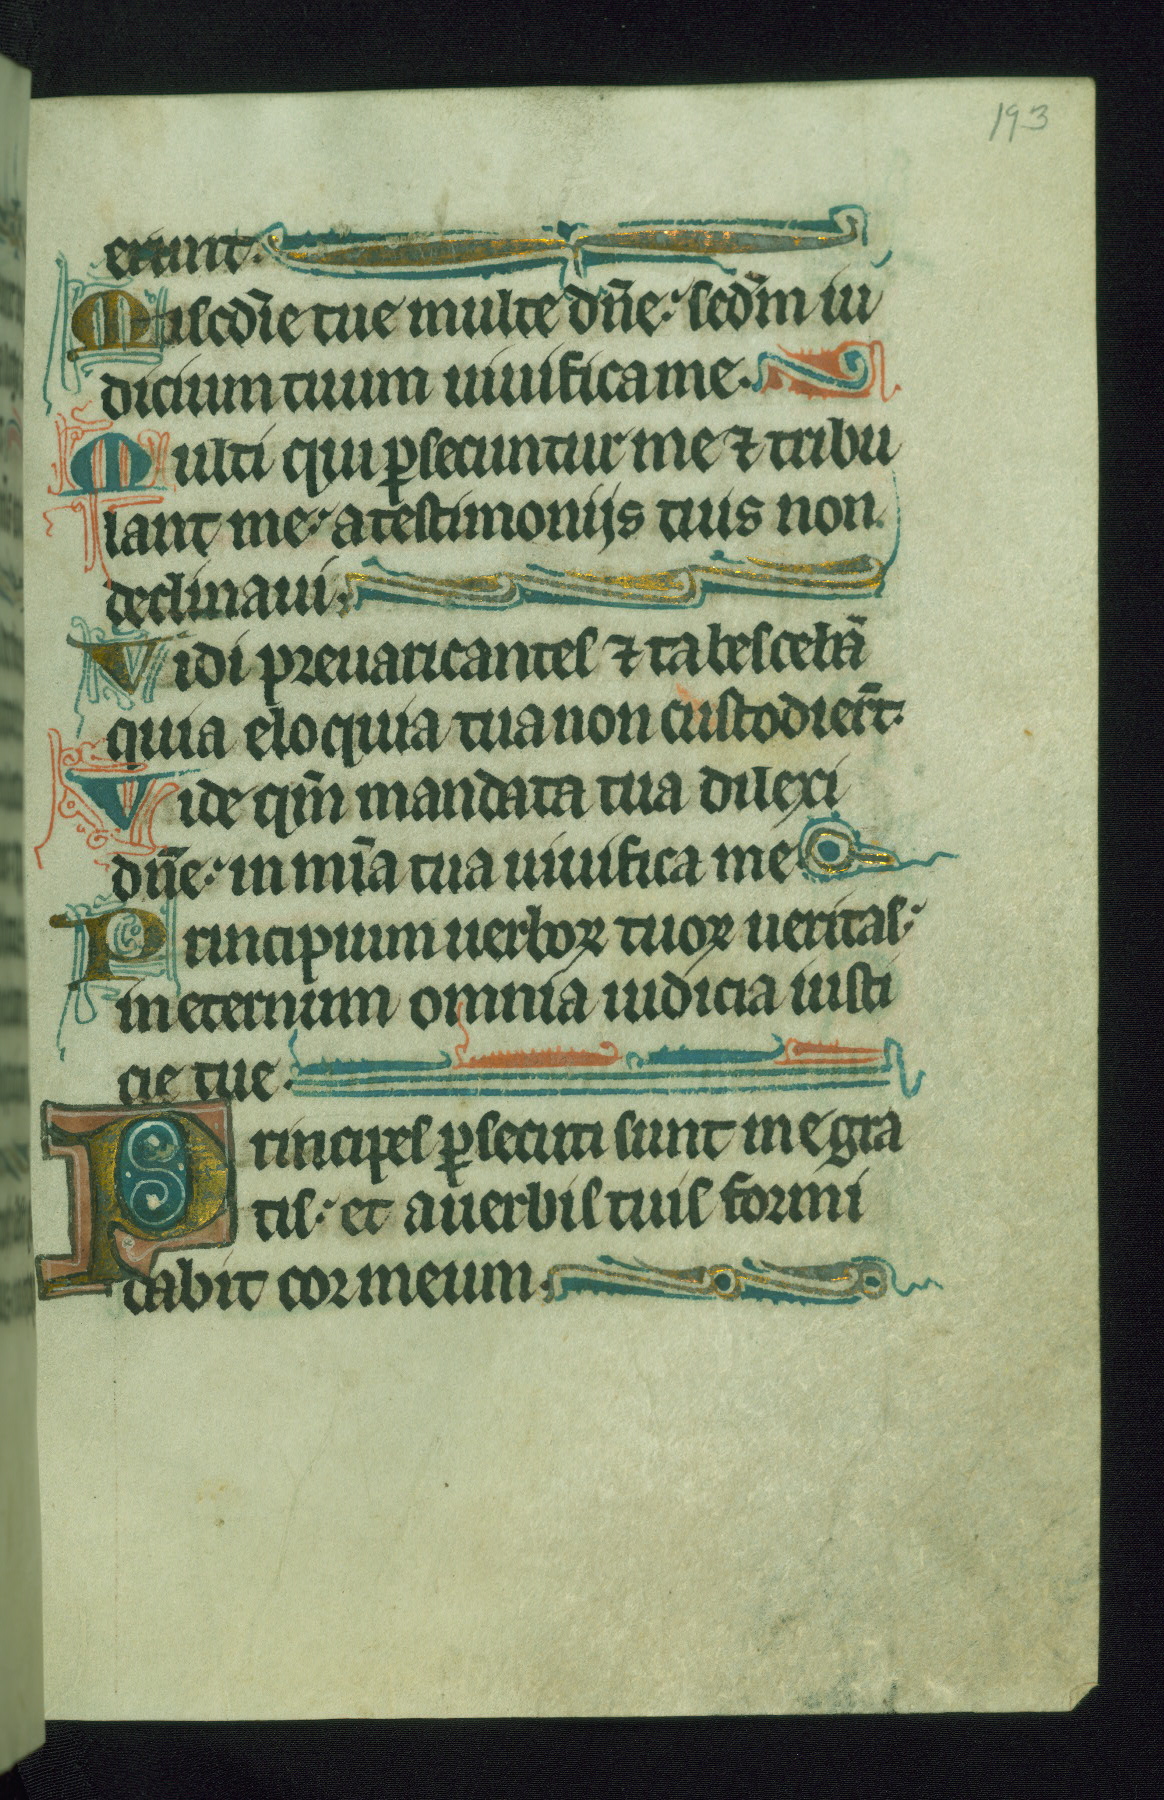 193
erunt.
Misc̄die tue multe dn̄e: sedm̄ iu
dicium tuum uiuifica me.
Multi qui ꝑsecuntur me ⁊ tribu
lant me: a testimoniis tuis non
declinaui.
Vidi preuaricantes ⁊ tabescebā
quia eloquia tua non custodier̄t.
Vide qm̄ mandata tua dilexi
dn̄e: in mīa tua uiuifica me
Principium uerboꝝ tuoꝝ ueritas:
in eternum omnia iudicia iusti
cie tue.
Principes ꝑsecuti sunt me gra
tis: et a uerbis tuis formi
dabit cor meum.